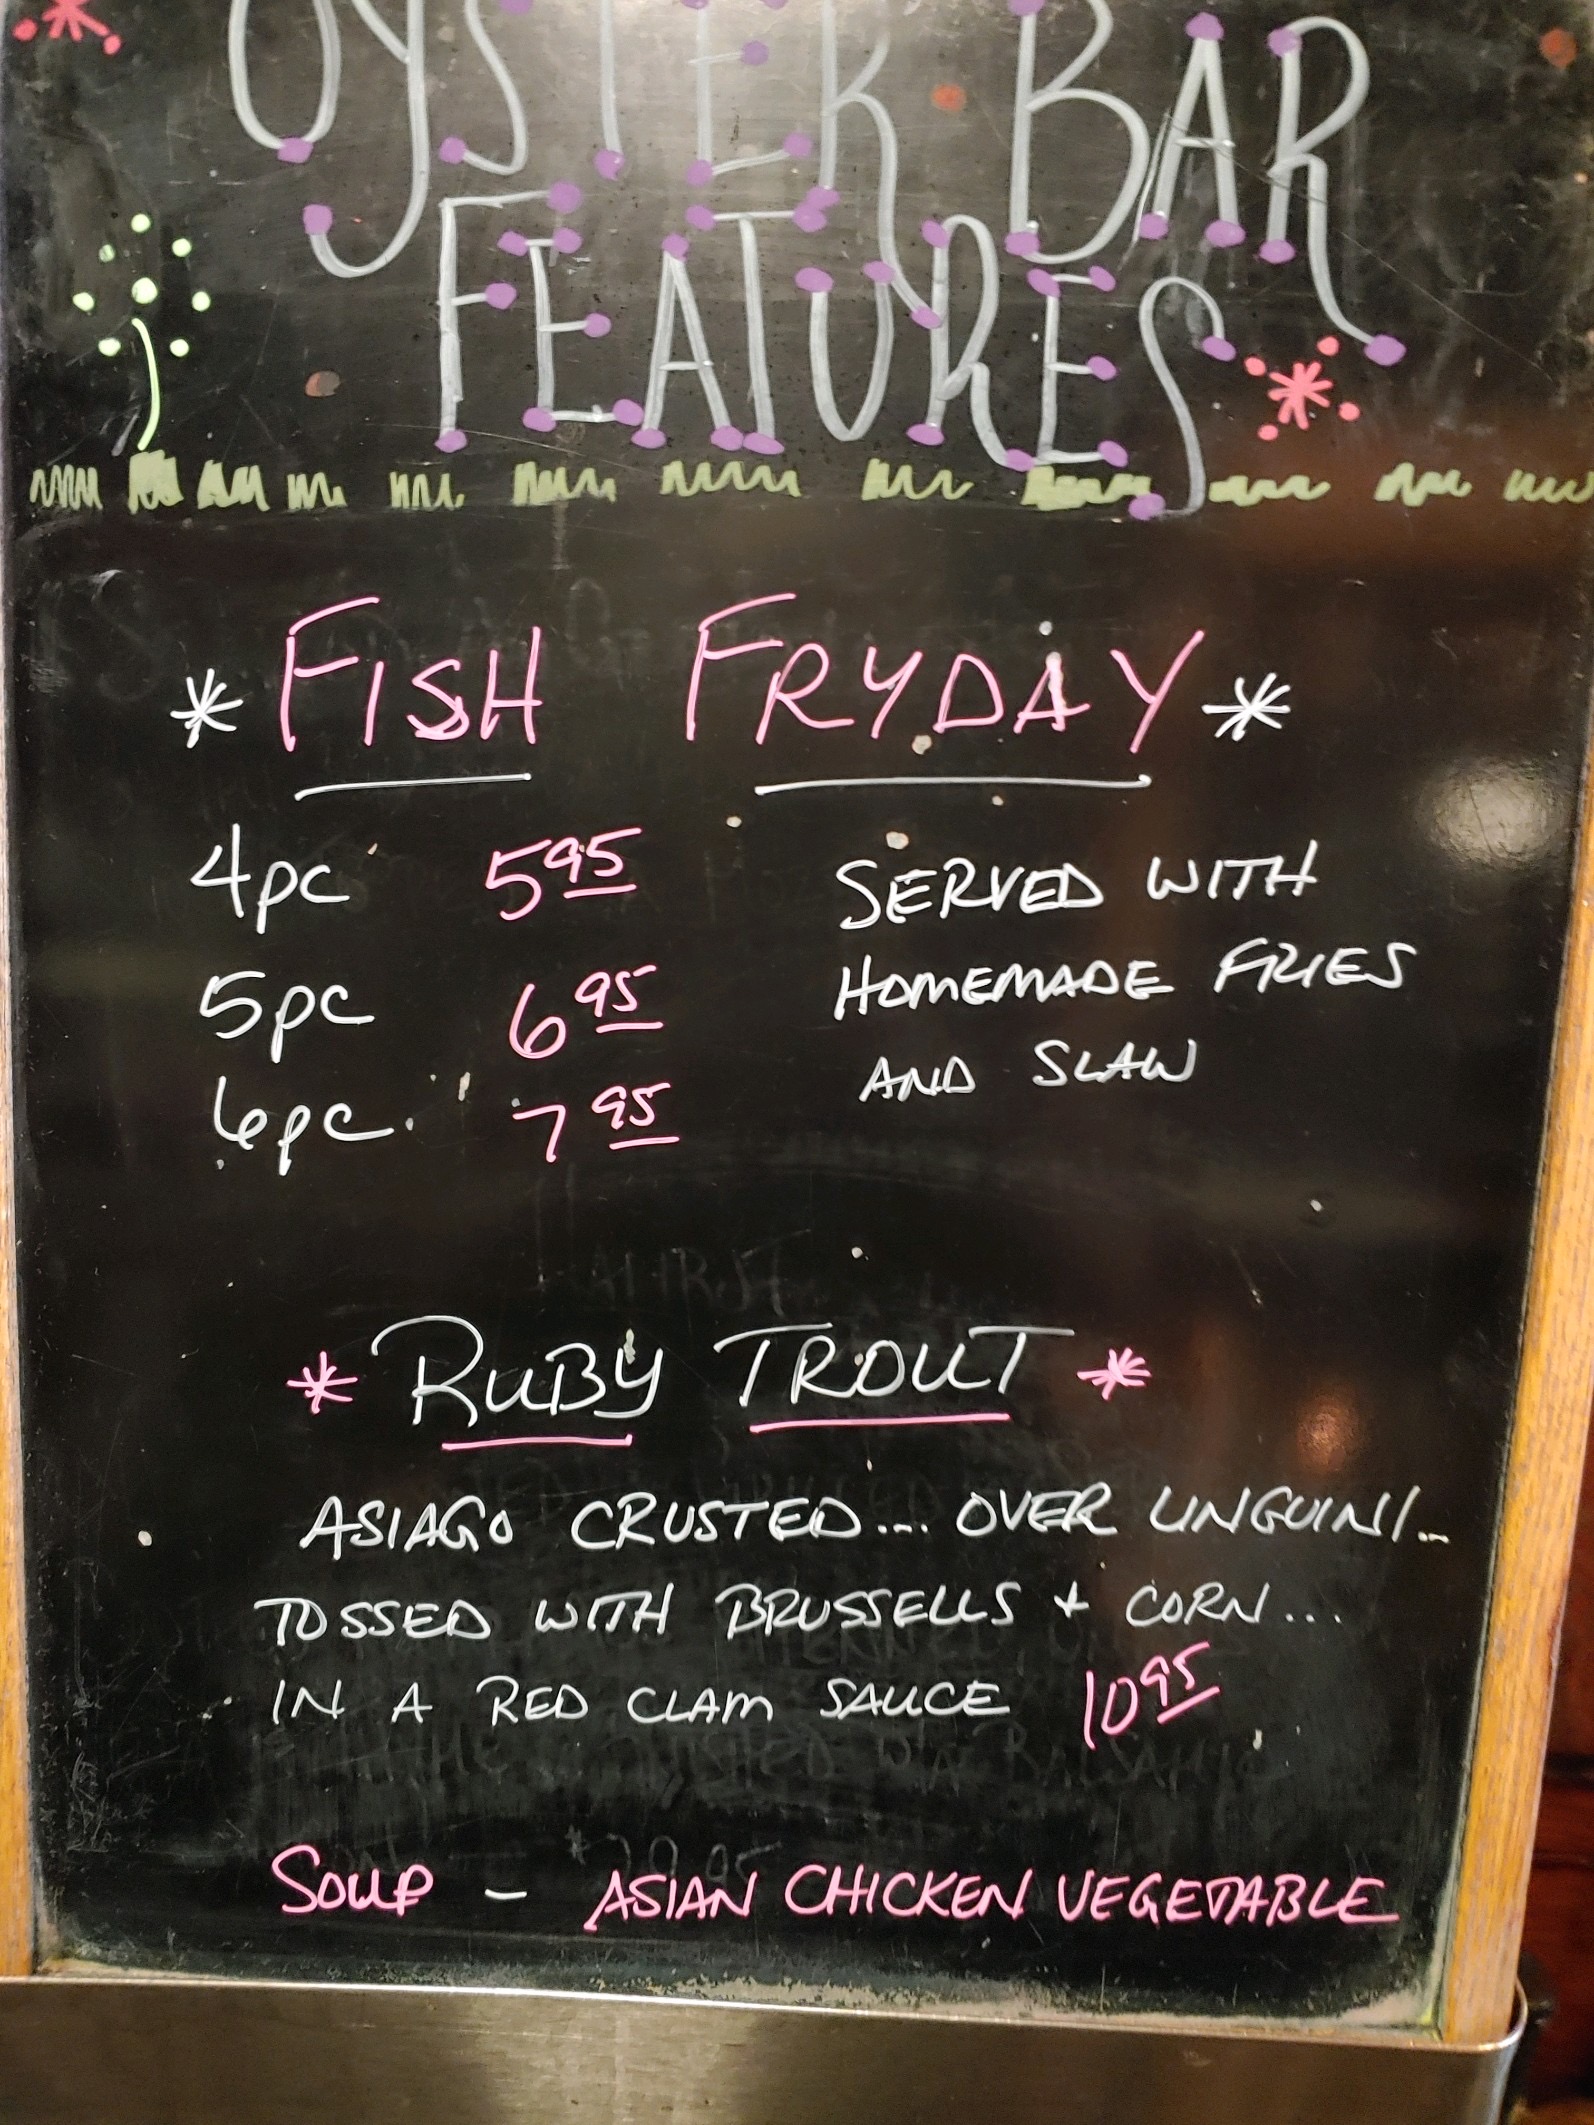 OYSTER BAR
FEATURES
* FISH FRYDAY *
4pc 5 95
5pc 6 95
6pc. 7 95
SERVED WITH
HOMEMADE FRIES
AND SLAW
* RUBY TROUT *
ASIAGO CRUSTED... OVER LINGUINI...
TOSSED WITH BRUSSELLS + CORN...
IN A RED CLAM SAUCE 10 95
SOUP - ASIAN CHICKEN VEGETABLE